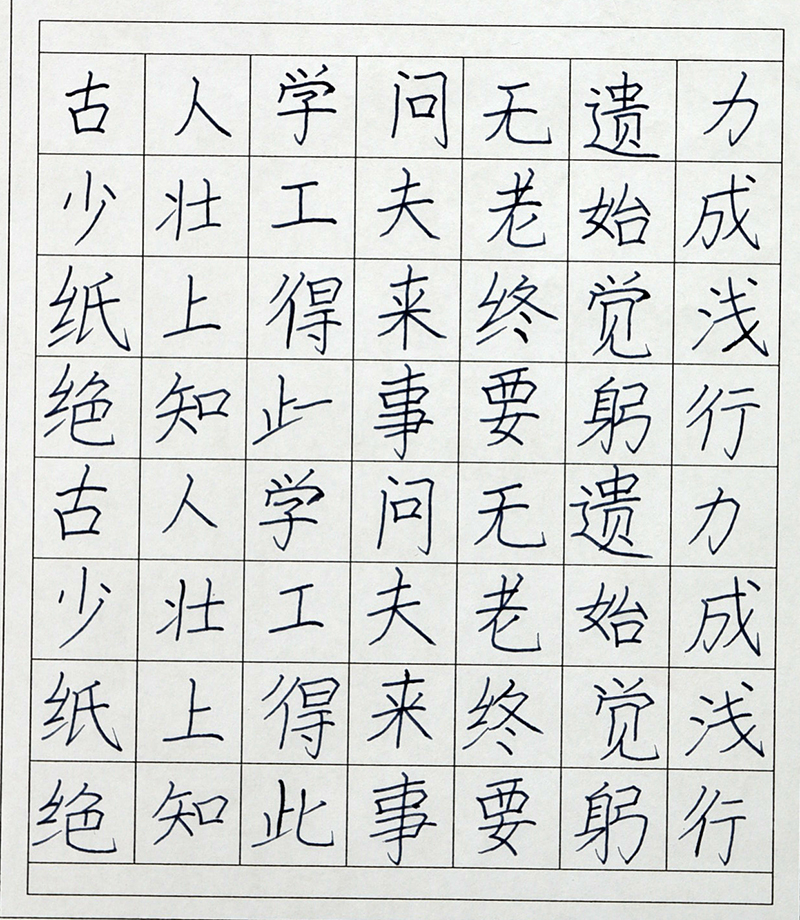 古人学问无遗力
少壮工夫老始成
纸上得来终觉浅
绝知此事要躬行
古人学问无遗力
少壮工夫老始成
纸上得来终觉浅
绝知此事要躬行